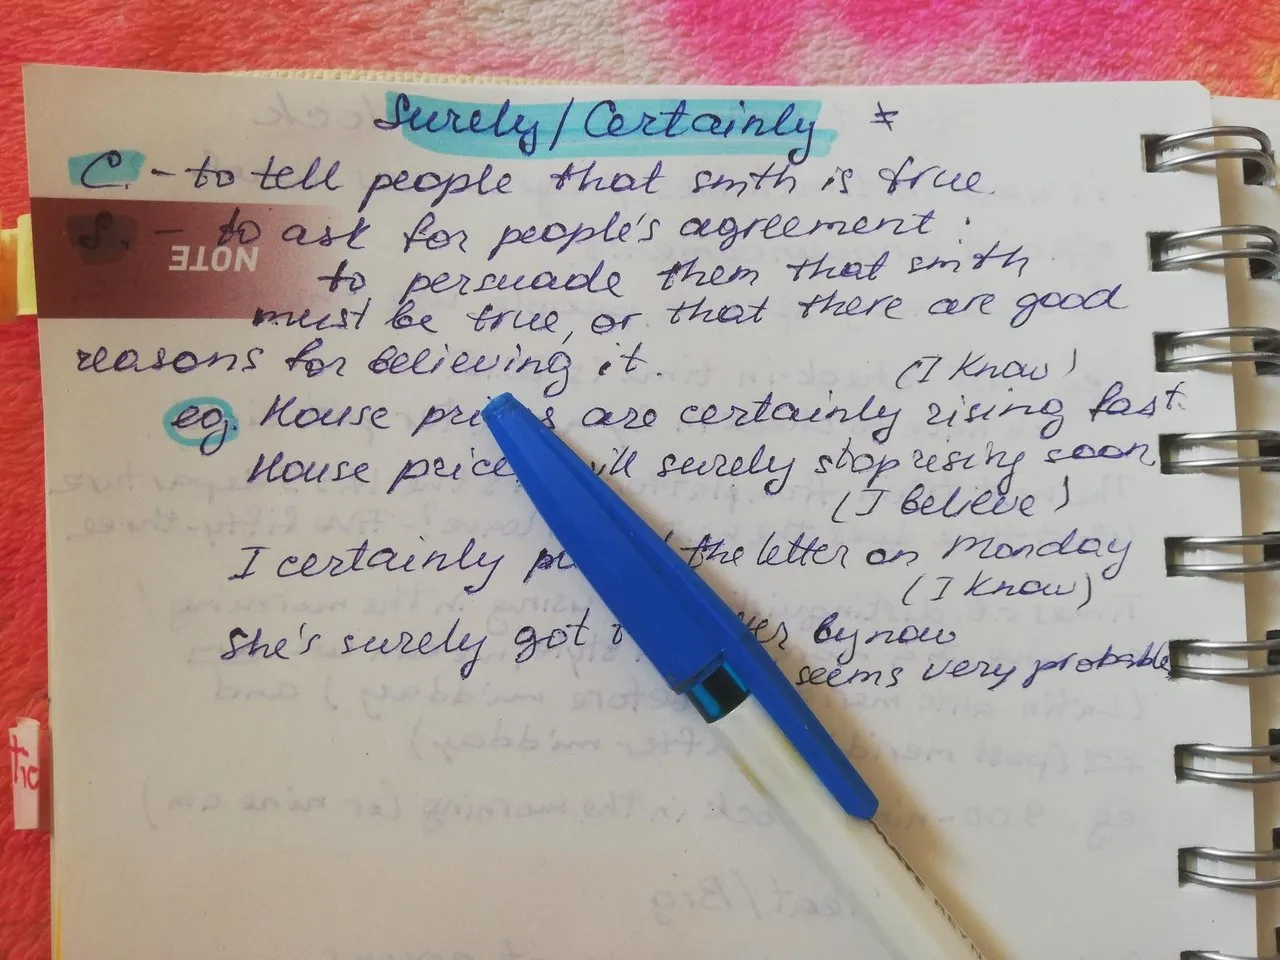 Surely/Certainly ≠
C. - to tell people that smth is true.
S. - to ask for people's agreement;
NOTE
to persuade them that smth
must be true, or that there are good
reasons for believing it.
(I know)
eg. House are certainly rising fast.
House surely stop rising soon
(I believe)
I certainly the letter on Monday
(I know)
She's surely got by now
seems very probable